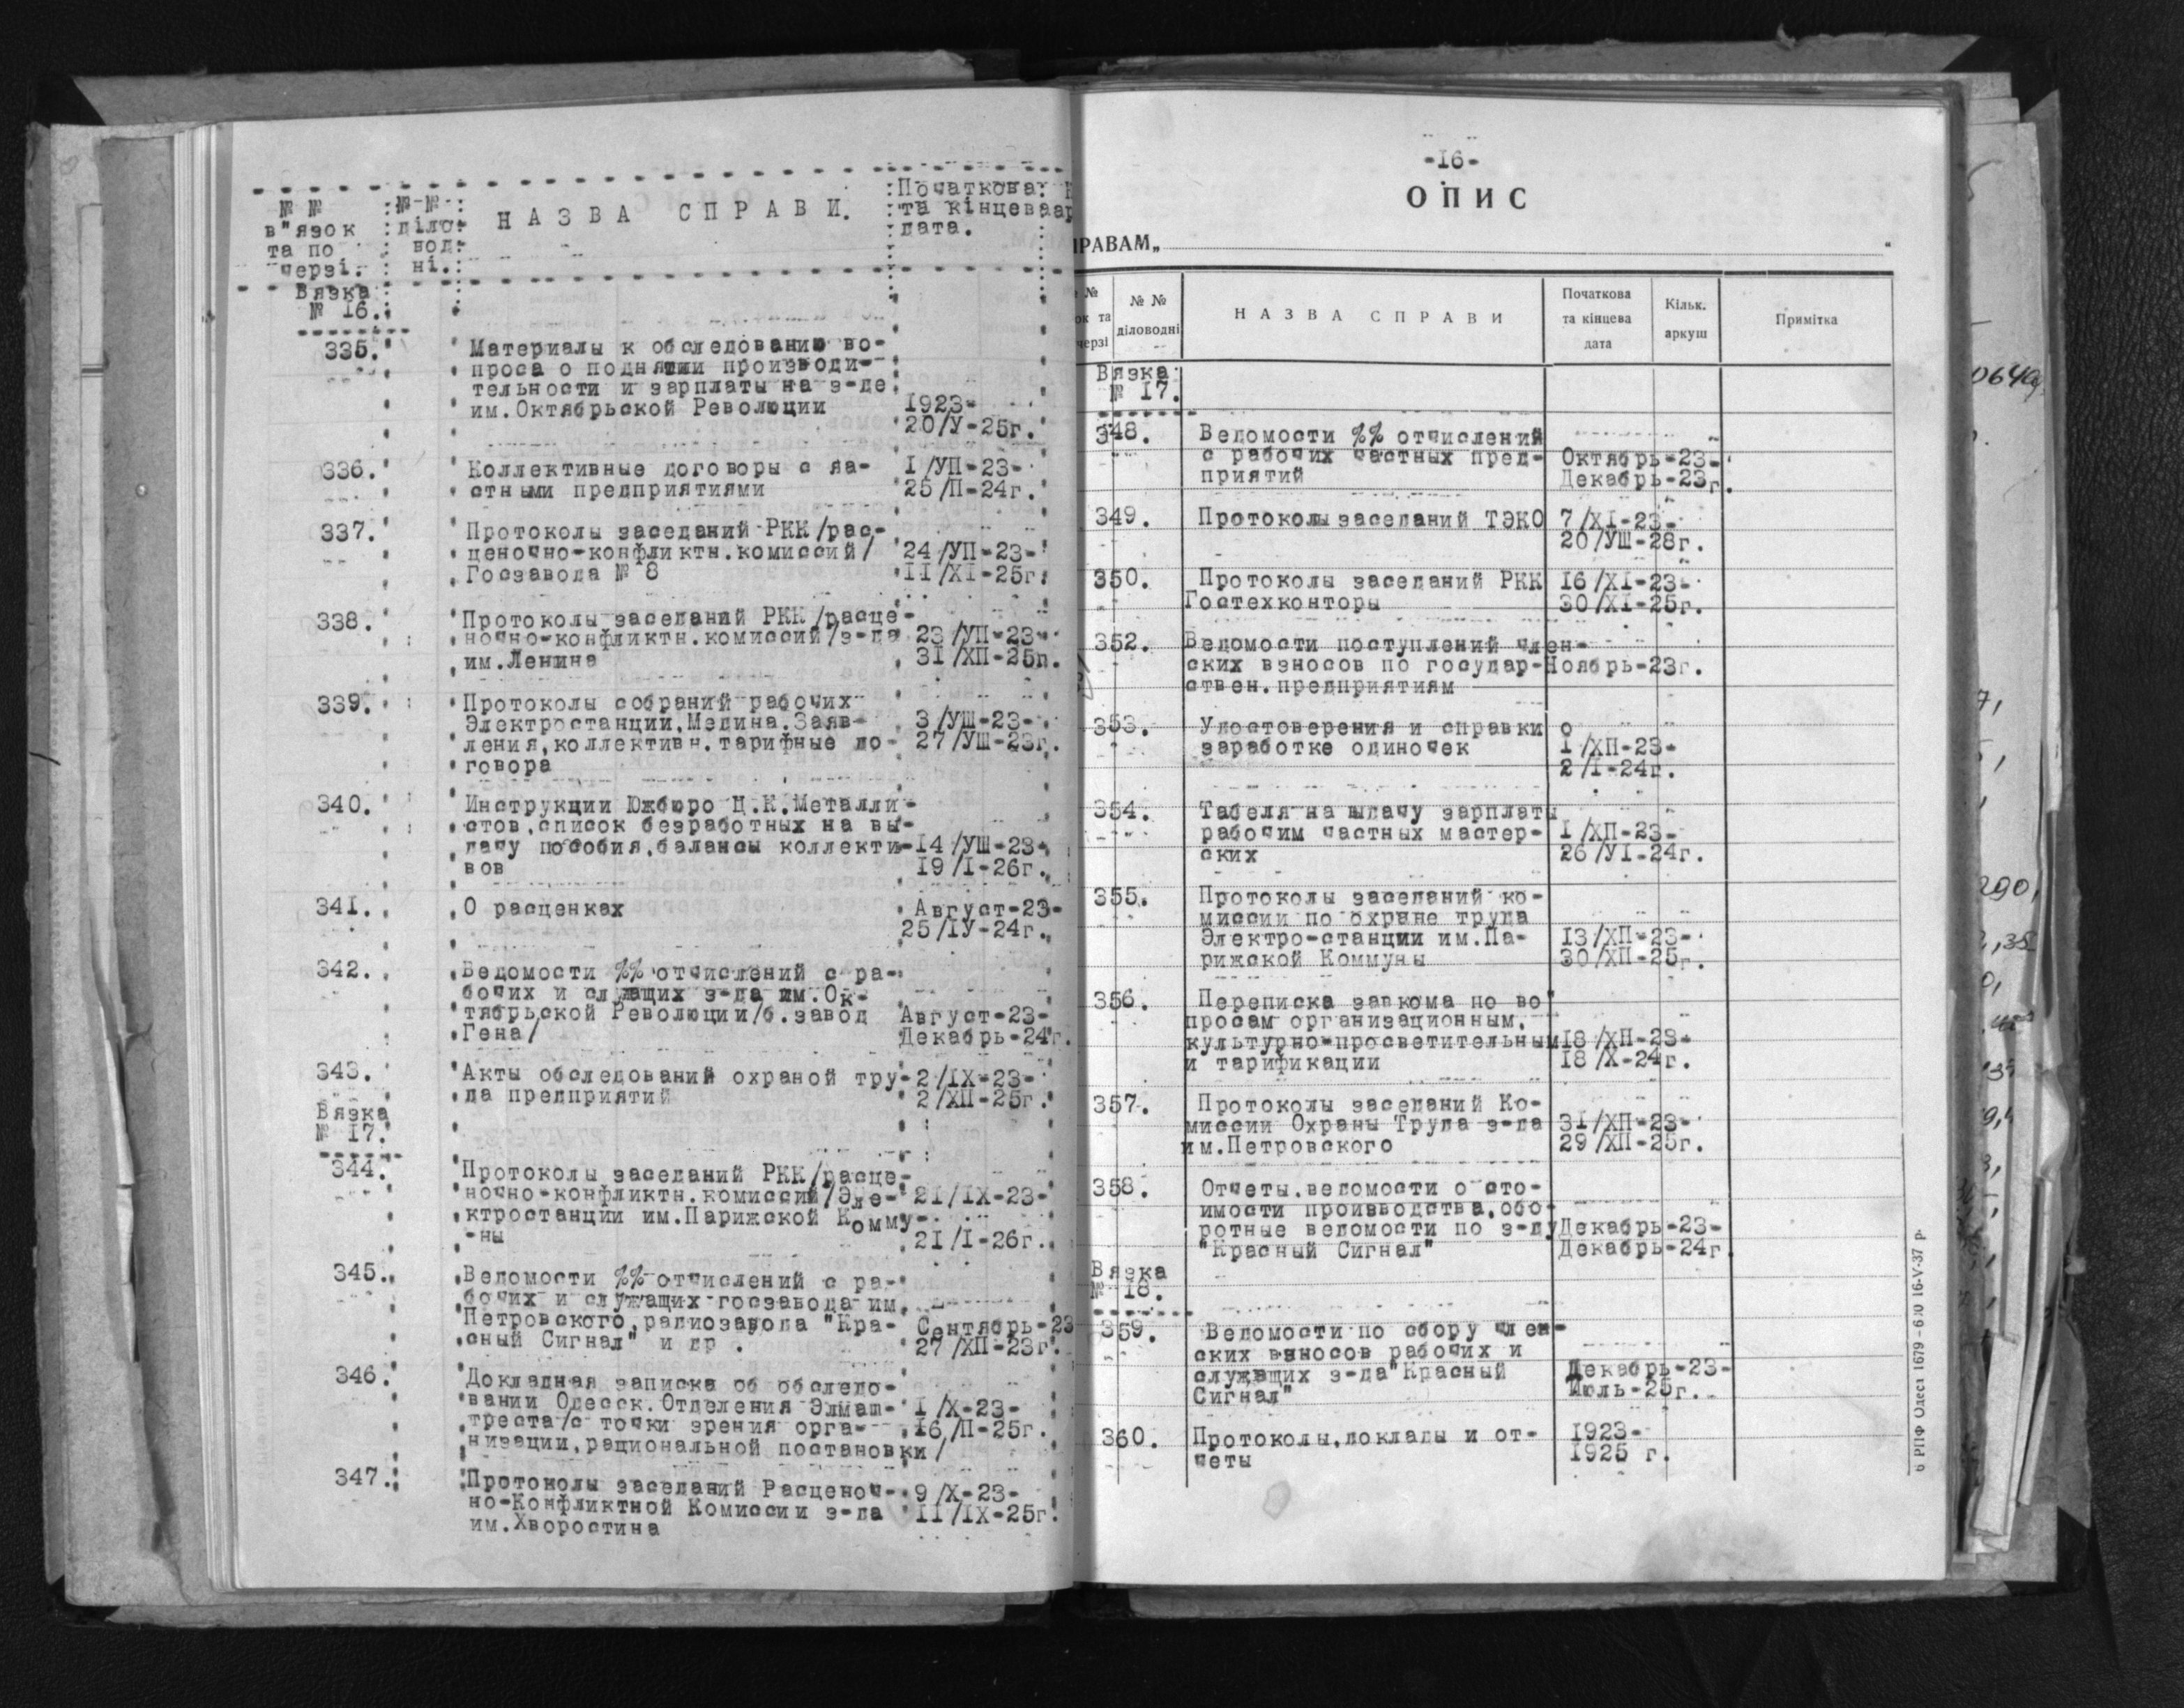 № № в"язок та по черзі.
№ № діловодні.
НАЗВА СПРАВИ.
Початкова та кінцева дата.
Вязка
№ 16.
335.
Материалы к обследованию во-
проса о поднятии производи-
тельности и зарплаты на з-де
им.Октябрьской Революции 1923-
20/У-25г.
336. Коллективные договоры с яа- 1/УП-23-
стными предприятиями 25/П-24г.
337. Протоколы заседаний РКК/рас-
ценочно-конфликтн.комиссий/ 24/УП-23-
Госзавода № 8 11/XI-25г.
338. Протоколы заседаний РКК/расце-
ночно-конфликтн.комиссий/з-да 23/УП-23-
им.Ленина 31/ХП-25п.
339. Протоколы собраний рабочих
Электростанции,Медина.Заяв- 3/УШ-23-
ления,коллективн.тарифные до- 27/УШ-23г.
говора
340. Инструкции Южбюро Ц.К.Металли-
стов,список безработных на вы-
дачу пособия,балансы коллекти- 14/УШ-23-
вов 19/I-26г.
341. О расценках Август-23-
25/IУ-24г.
342. Ведомости %% отчислений с ра-
бочих и служащих з-да им.Ок-
тябрьской Революции/б.завод Август-23-
Гена/ Декабрь-24г.
343. Акты обследований охраной тру- 2/IX-23-
да предприятий 2/ХП-25г.
Вязка
№ 17.
344. Протоколы заседаний РКК/расце-
ночно-конфликтн.комиссий/Эле- 21/IX-23-
ктростанции им.Парижской Комму-
-ны 21/I-26г.
345. Ведомости %% отчислений с ра-
бочих и служащих госзавода им.
Петровского,радиозавода "Кра- Сентябрь-23
сный Сигнал" и др. 27/ХП-23г.
346. Докладная записка об обследо-
вании Одесск.Отделения Элмаш- 1/X-23-
треста/с точки зрения орга- 16/П-25г.
низации,рациональной постановки/
347. Протоколы заседаний Расценоч- 9/X-23-
но-Конфликтной Комиссии з-да 11/IX-25г.
им.Хворостина
-16-
ОПИС
ПРАВАМ„ “
№ ок та черзі
№ № діловодні
НАЗВА СПРАВИ
Початкова та кінцева дата
Кільк. аркуш
Примітка
Вязка
№ 17.
348. Ведомости %% отчислений
с рабочих частных пред- Октябрь-23-
приятий Декабрь-23г.
349. Протоколы заседаний ТЭКО 7/XI-23-
20/УШ-28г.
350. Протоколы заседаний РКК 16/XI-23-
Гостехконторы 30/XI-25г.
352. Ведомости поступлений член-
ских взносов по государ- Ноябрь-23г.
ствен.предприятиям
353. Удостоверения и справки о
заработке одиночек 1/ХП-23-
2/I-24г.
354. Табеля на ыдачу зарплаты
рабочим частных мастер- 1/ХП-23-
ских 26/УI-24г.
355. Протоколы заседаний ко-
миссии по охране труда
Электро-станции им.Па- 13/ХП-23-
рижской Коммуны 30/ХП-25г.
356. Переписка завкома по во-
просам организационным,
культурно-просветительным 18/ХП-23-
и тарификации 18/X-24г.
357. Протоколы заседаний Ко-
миссии Охраны Труда з-да 31/ХП-23-
им.Петровского 29/ХП-25г.
358. Отчеты,ведомости о сто-
имости производства,обо-
ротные ведомости по з-ду Декабрь-23-
"Красный Сигнал" Декабрь-24г
Вязка
№ 18.
359. Ведомости по сбору член-
ских взносов рабочих и
служащих з-да"Красный Декабрь-23-
Сигнал" Июль-25г.
360. Протоколы,доклады и от- 1923-
четы 1925 г.
6 РПФ Одеса 1679-600 16-V-37 р.